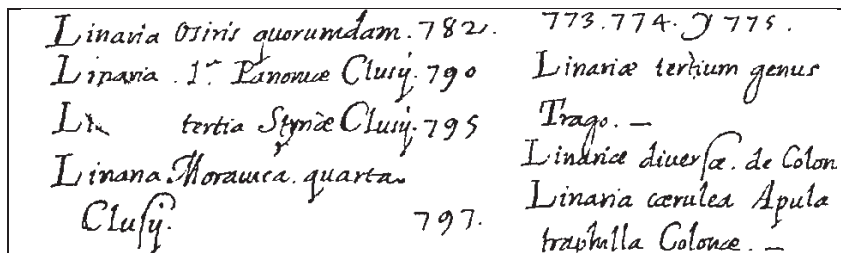 Linaria Osiris quorumdam. 782.
Linaria 1.ª Panoniæ Clusij. 790
Li tertia Styriæ Clusij. 795
Linaria Morauica. quarta
Clusij. 797.
773. 774. & 775.
Linariæ tertium genus
Trago. —
Linariæ diuersæ. de Colon
Linaria cærulea Apula
Colonæ. —